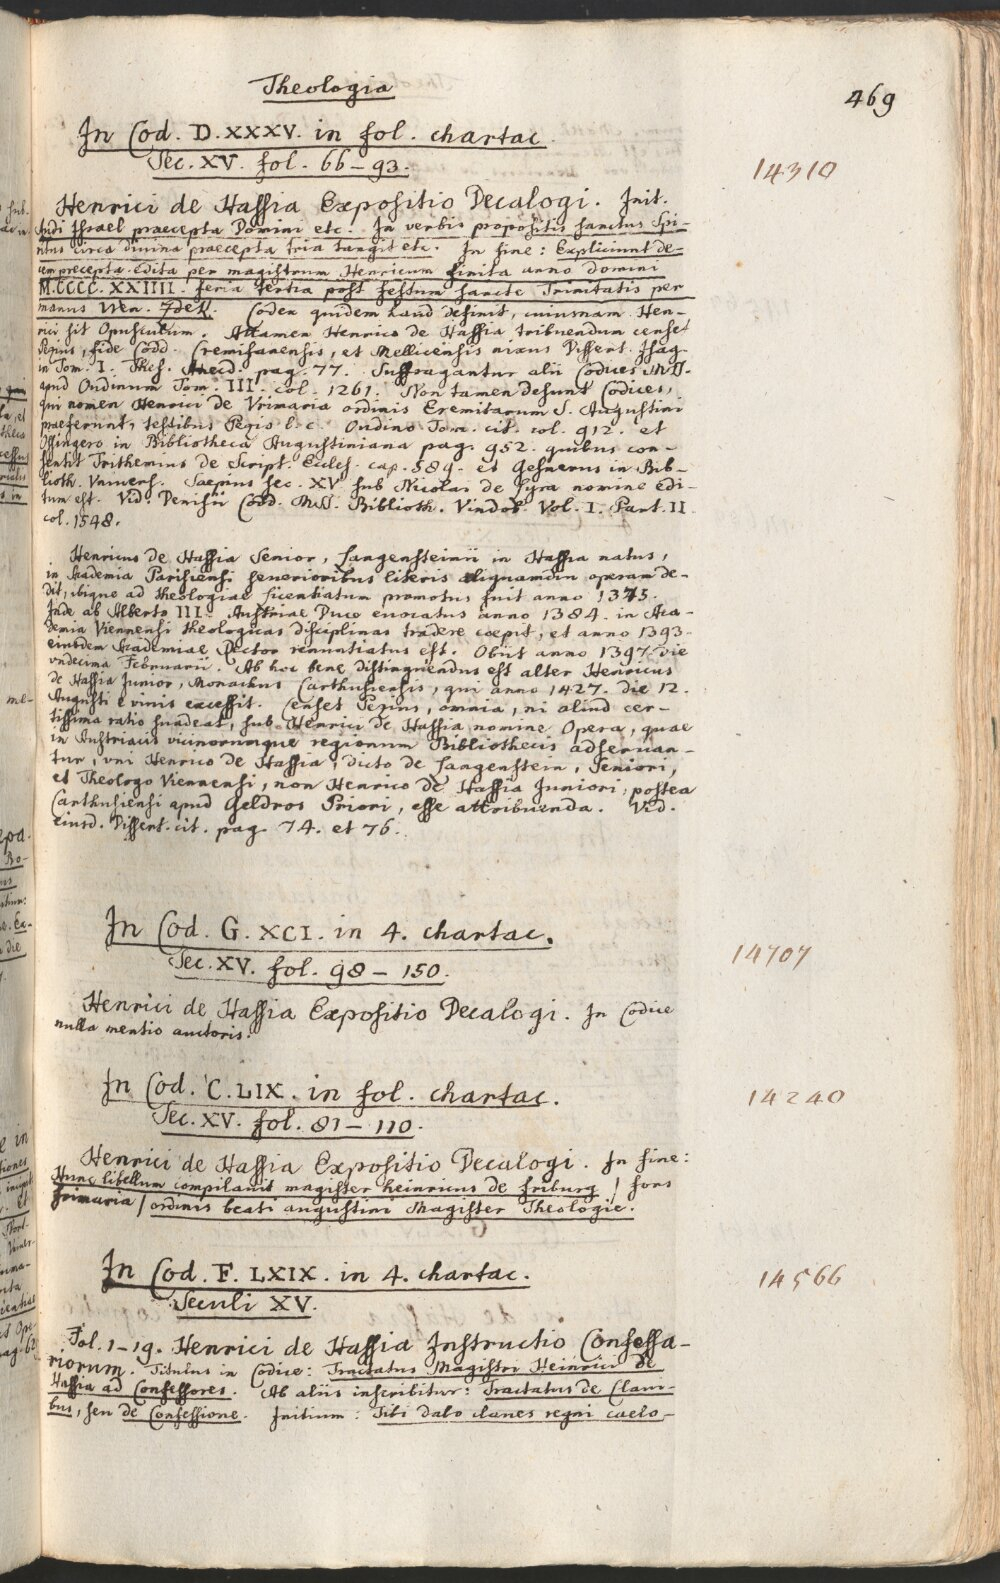 Theologia
469
In Cod. D. XXXV. in fol. chartac.
14310
Sec. XV. fol. 66–93.
Henrici de Hassia Expositio Decalogi. Init.
Audi Israel praecepta Domini etc. In verbis propositis sanctus Spi-
ritus circa divina praecepta tria tangit etc. In fine: Expliciunt de-
cem precepta edita per magistrum Henricum finita anno domini
M.CCCC.XXIIII. feria tertia post festum sancte Trinitatis per
manus Wen. Codex quidem haud definit, cuiusnam Hen-
rici sit Opusculum. Attamen Henrico de Hassia tribuendum censet
Pezius, fide Codd. Cremifanensis, et Mellicensis nixus Dissert. Isag.
in Tom. I. Thes. Anecd. pag. 77. Suffragantur alii Codices MSS.
apud Oudinum Tom. III. col. 1261. Non tamen desunt Codices,
qui nomen Henrici de Vrimaria ordinis Eremitarum S. Augustini
praeferunt, testibus Pezio l. c. Oudino Tom. cit. col. 912. et
Ossingero in Bibliotheca Augustiniana pag. 952. quibus con-
sentit Trithemius de Script. Eccles. cap. 589. et Gesnerus in Bib-
lioth. Univers. Saepius sec. XV sub Nicolai de Lyra nomine edi-
tum est. Vid. Denisii Codd. MSS. Biblioth. Vindob. Vol. I. Part. II.
col. 1548.
Henricus de Hassia Senior, Langensteinii in Hassia natus,
in Academia Parisiensi severioribus literis aliquamdiu operam de-
dit, ibique ad theologiae licentiatum promotus fuit anno 1375.
Inde ab Alberto III. Austriae Duce evocatus anno 1384. in Aca-
demia Viennensi theologicas disciplinas tradere coepit, et anno 1393.
eiusdem Academiae Rector renuntiatus est. Obiit anno 1397. die
undecima Februarii. Ab hoc bene distinguendus est alter Henricus
de Hassia Junior, Monachus Carthusiensis, qui anno 1427. die 12.
Augusti e vivis excessit. Censet Pezius, omnia, ni aliud cer-
tissima ratio suadeat, sub Henrici de Hassia nomine Opera, quae
in Austriacis vicinorumque regionum Bibliothecis adservan-
tur, uni Henrico de Hassia, dicto de Langenstein, Seniori,
et Theologo Viennensi, non Henrico de Hassia Juniori, postea
Carthusiensi apud Geldros Priori, esse attribuenda. Vid.
eiusd. Dissert. cit. pag. 74. et 76.
In Cod. G. XCI. in 4. chartac.
14707
Sec. XV. fol. 98–150.
Henrici de Hassia Expositio Decalogi. In Codice
nulla mentio auctoris.
In Cod. C. LIX. in fol. chartac.
14240
Sec. XV. fol. 81–110.
Henrici de Hassia Expositio Decalogi. In fine:
Hunc libellum compilavit magister heinricus de friburg / fors
frimaria / ordinis beati augustini Magister Theologie.
In Cod. F. LXIX. in 4. chartac.
14566
Seculi XV.
Fol. 1–19. Henrici de Hassia Instructio Confessa-
riorum. Titulus in Codice: Tractatus Magistri Heinrici de
Hassia ad Confessores. Ab aliis inscribitur: Tractatus de Clavi-
bus, seu de Confessione. Initium: Tibi dabo claves regni caelo-